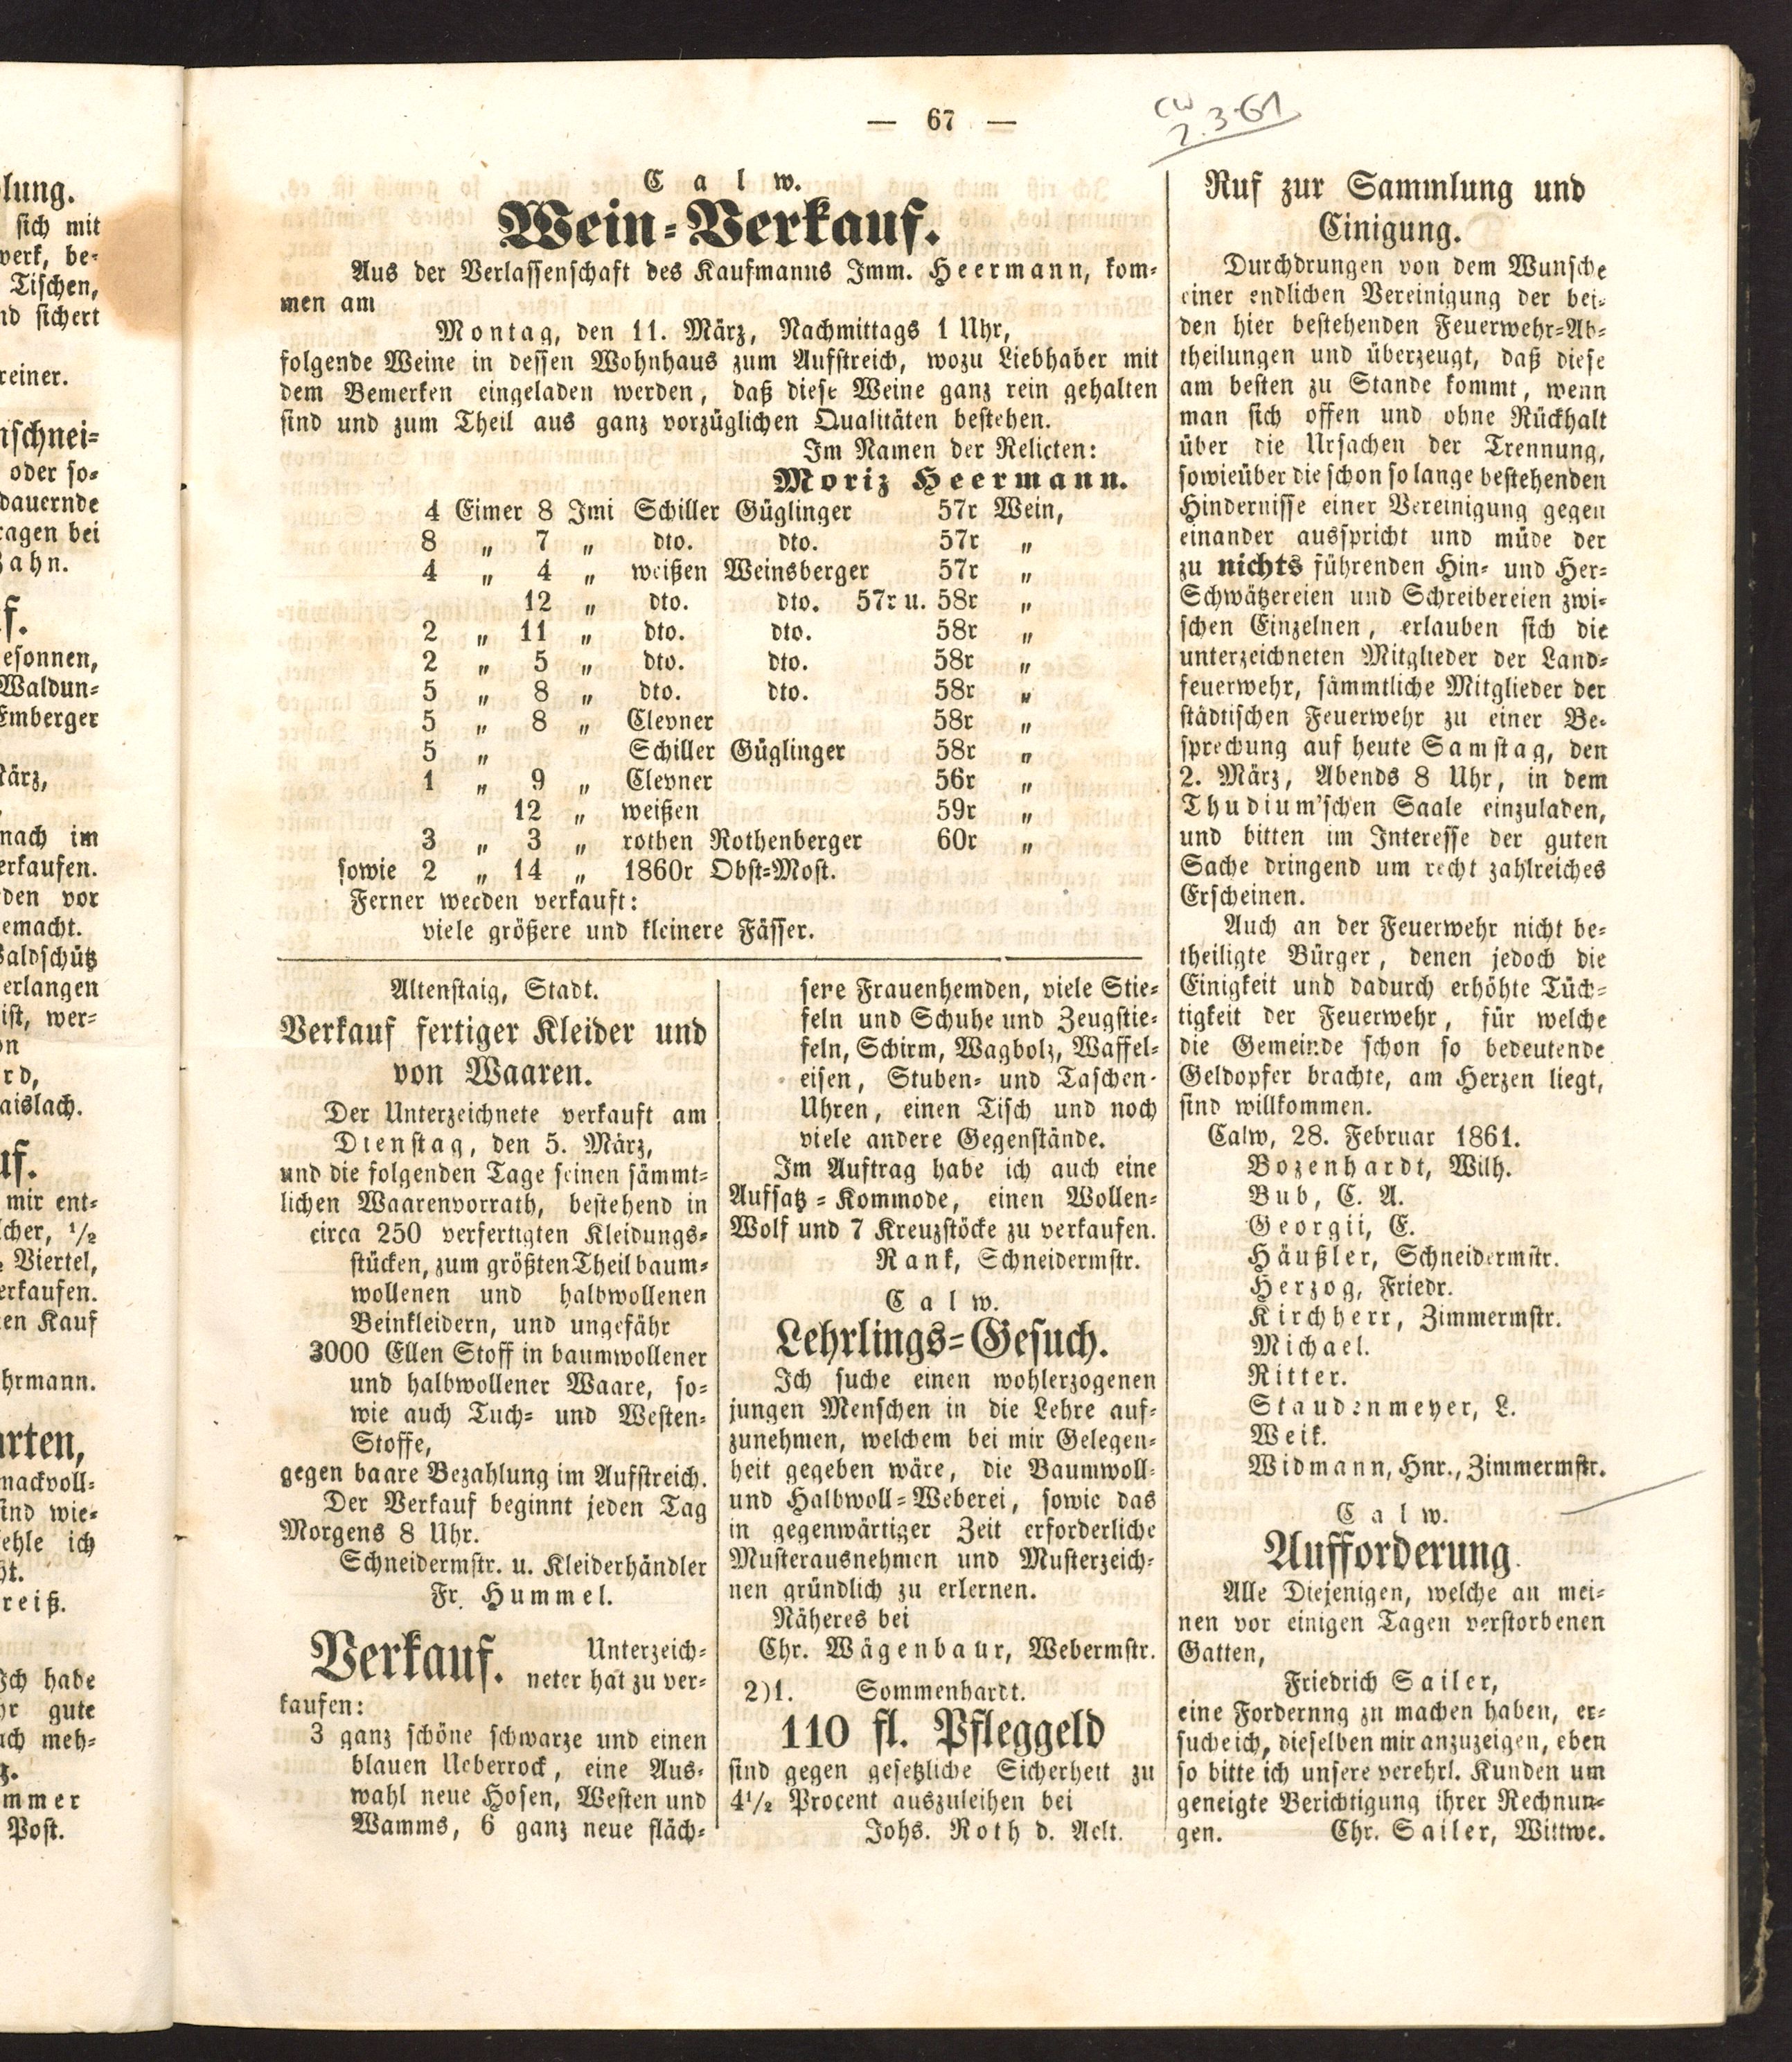 lung.
sich mit
werk, be-
Tischen,
nd sichert
reiner.
nschnei-
oder so-
dauernde
ragen bei
ahn.
f.
esonnen,
Waldun-
Emberger
März,
nach im
erkaufen.
den vor
emacht.
Waldschütz
erlangen
ist, wer-
on
rd,
aislach.
uf.
mir ent-
lcher, ½
Viertel,
erkaufen.
en Kauf
hrmann.
arten,
mackvoll-
sind wie-
ehle ich
ht.
reiß.
Ich habe
hr gute
uch meh-
g.
mmer
Post.
— 67 —
CW
2.3.61
Calw.
Wein-Verkauf.
Aus der Verlassenschaft des Kaufmanns Imm. Heermann, kom-
men am
Montag, den 11. März, Nachmittags 1 Uhr,
folgende Weine in dessen Wohnhaus zum Aufstreich, wozu Liebhaber mit
dem Bemerken eingeladen werden, daß diese Weine ganz rein gehalten
sind und zum Theil aus ganz vorzüglichen Qualitäten bestehen.
Im Namen der Relicten:
Moriz Heermann.
4 Eimer 8 Imi Schiller Güglinger 57r Wein,
8 „ 7 „ dto. dto. 57r „
4 „ 4 „ weißen Weinsberger 57r „
12 „ dto. dto. 57r u. 58r „
2 „ 11 „ dto. dto. 58r „
2 „ 5 „ dto. dto. 58r „
5 „ 8 „ dto. dto. 58r „
5 „ 8 „ Clevner 58r „
5 „ Schiller Güglinger 58r „
1 „ 9 „ Clevner 56r „
12 „ weißen 59r „
3 „ 3 „ rothen Rothenberger 60r „
sowie 2 „ 14 „ 1860r Obst-Most.
Ferner werden verkauft:
viele größere und kleinere Fässer.
Altenstaig, Stadt.
Verkauf fertiger Kleider und
von Waaren.
Der Unterzeichnete verkauft am
Dienstag, den 5. März,
und die folgenden Tage seinen sämmt-
lichen Waarenvorrath, bestehend in
circa 250 verfertigten Kleidungs-
stücken, zum größten Theil baum-
wollenen und halbwollenen
Beinkleidern, und ungefähr
3000 Ellen Stoff in baumwollener
und halbwollener Waare, so-
wie auch Tuch- und Westen-
Stoffe,
gegen baare Bezahlung im Aufstreich.
Der Verkauf beginnt jeden Tag
Morgens 8 Uhr.
Schneidermstr. u. Kleiderhändler
Fr. Hummel.
Verkauf. Unterzeich-
neter hat zu ver-
kaufen:
3 ganz schöne schwarze und einen
blauen Ueberrock, eine Aus-
wahl neue Hosen, Westen und
Wamms, 6 ganz neue fläch-
sene Frauenhemden, viele Stie-
feln und Schuhe und Zeugstie-
feln, Schirm, Wagbolz, Waffel-
eisen, Stuben- und Taschen-
Uhren, einen Tisch und noch
viele andere Gegenstände.
Im Auftrag habe ich auch eine
Aufsatz-Kommode, einen Wollen-
Wolf und 7 Kreuzstöcke zu verkaufen.
Rank, Schneidermstr.
Calw.
Lehrlings-Gesuch.
Ich suche einen wohlerzogenen
jungen Menschen in die Lehre auf-
zunehmen, welchem bei mir Gelegen-
heit gegeben wäre, die Baumwoll-
und Halbwoll-Weberei, sowie das
in gegenwärtiger Zeit erforderliche
Musterausnehmen und Musterzeich-
nen gründlich zu erlernen.
Näheres bei
Chr. Wägenbaur, Webermstr.
2)1. Sommenhardt.
110 fl. Pfleggeld
sind gegen gesetzliche Sicherheit zu
4½ Procent auszuleihen bei
Johs. Roth d. Aelt.
Ruf zur Sammlung und
Einigung.
Durchdrungen von dem Wunsche
einer endlichen Vereinigung der bei-
den hier bestehenden Feuerwehr-Ab-
theilungen und überzeugt, daß diese
am besten zu Stande kommt, wenn
man sich offen und ohne Rückhalt
über die Ursachen der Trennung,
sowie über die schon so lange bestehenden
Hindernisse einer Vereinigung gegen
einander ausspricht und müde der
zu nichts führenden Hin- und Her-
Schwätzereien und Schreibereien zwi-
schen Einzelnen, erlauben sich die
unterzeichneten Mitglieder der Land-
feuerwehr, sämmtliche Mitglieder der
städtischen Feuerwehr zu einer Be-
sprechung auf heute Samstag, den
2. März, Abends 8 Uhr, in dem
Thudium'schen Saale einzuladen,
und bitten im Interesse der guten
Sache dringend um recht zahlreiches
Erscheinen.
Auch an der Feuerwehr nicht be-
theiligte Bürger, denen jedoch die
Einigkeit und dadurch erhöhte Tüch-
tigkeit der Feuerwehr, für welche
die Gemeinde schon so bedeutende
Geldopfer brachte, am Herzen liegt,
sind willkommen.
Calw, 28. Februar 1861.
Bozenhardt, Wilh.
Bub, C. A.
Georgii, E.
Häußler, Schneidermstr.
Herzog, Friedr.
Kirchherr, Zimmermstr.
Michael.
Ritter.
Staudenmeyer, L.
Weik.
Widmann, Hnr., Zimmermstr.
Calw.
Aufforderung.
Alle Diejenigen, welche an mei-
nen vor einigen Tagen verstorbenen
Gatten,
Friedrich Sailer,
eine Fordernng zu machen haben, er-
suche ich, dieselben mir anzuzeigen, eben
so bitte ich unsere verehrl. Kunden um
geneigte Berichtigung ihrer Rechnun-
gen. Chr. Sailer, Wittwe.